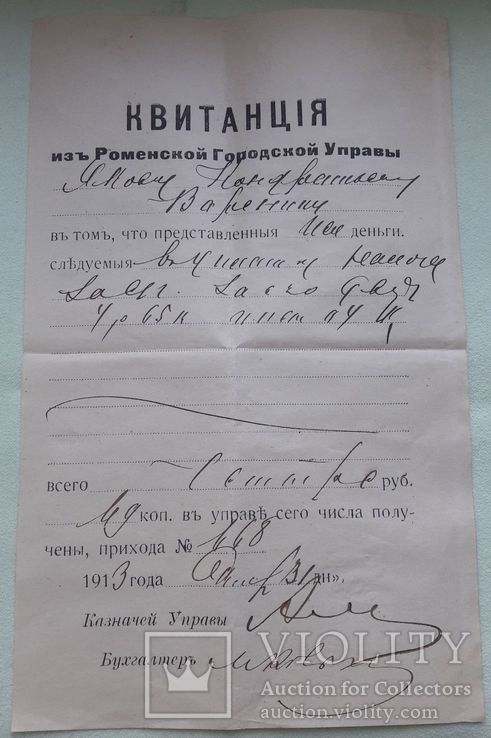 КВИТАНЦІЯ
изъ Роменской Городской Управы
Якову Кондратьеву
Варенику
въ томъ, что представленныя Имъ деньги.
слѣдуемыя въ уплату налога
за его
4 р 65 к пени 14 к
всего Четыре руб.
коп. въ управѣ сего числа полу-
чены, прихода № 1668
1913 года 31 дн».
Казначей Управы
Бухгалтеръ
VIOLITY
Auction for Collectors
auction.violity.com